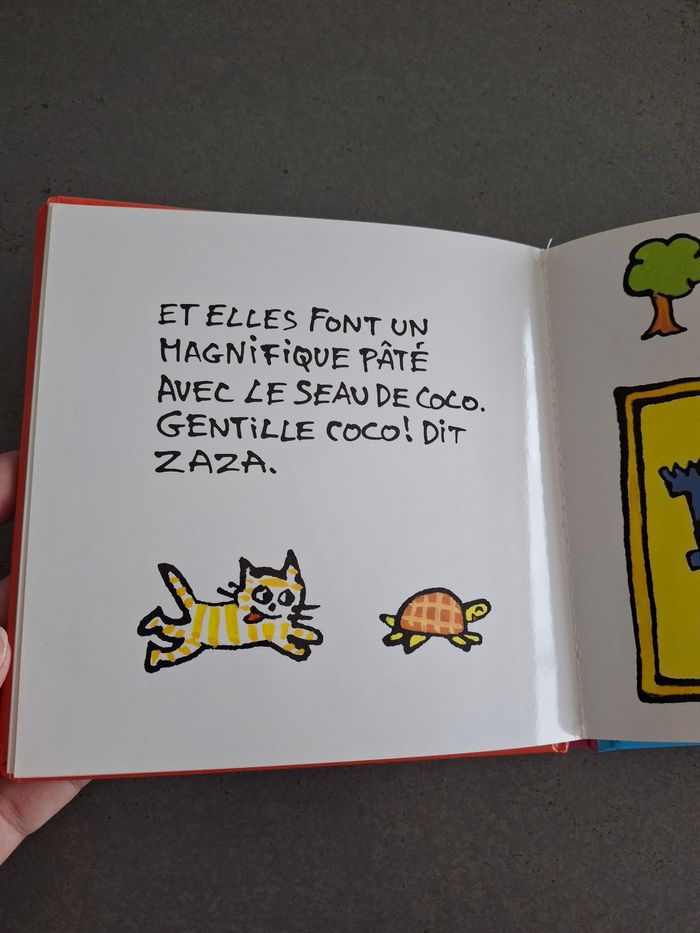 ET ELLES FONT UN
MAGNiFiQUE PÂTÉ
AVEC LE SEAU DE COCO.
GENTiLLE COCO! DiT
ZAZA.